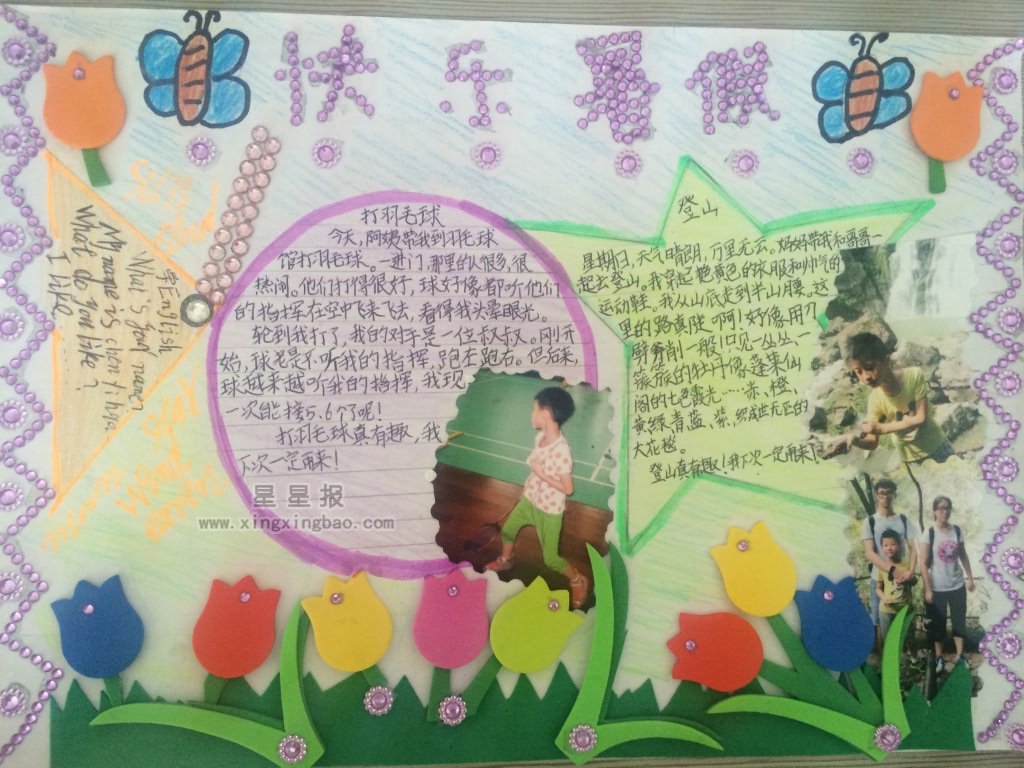 快乐暑假
打羽毛球
今天,阿姨带我到羽毛球
馆打羽毛球。一进门,那里的人很多,很
热闹。他们打得很好,球好像都听他们
的指挥在空中飞来飞去,看得我头晕眼光。
轮到我打了,我的对手是一位叔叔。刚开
始,球总是不听我的指挥,跑左跑右。但后来,
球越来越听我的指挥,我现
一次能接5、6个了呢!
打羽毛球真有趣,我
下次一定再来!
登山
星期日,天气晴朗,万里无云,妈妈带我和哥哥一
起去登山。我穿起艳黄色的衣服和帅气的
运动鞋。我从山底走到半山腰。这
里的路真陡啊!好像用刀
劈斧削一般!只见一丛丛、一
簇簇的牡丹像蓬莱仙
阁的七色霞光……赤、橙、
黄绿青蓝、紫,织成无巨的
大花毯。
登山真有趣!我下次一定再来!
学English
What's your name?
My name is chen
What do you like?
I like
星星报
www.xingxingbao.com